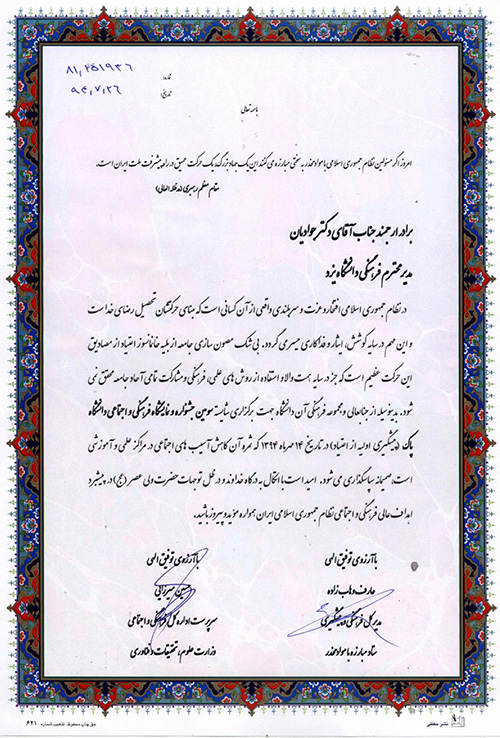 شماره: ۸۱٫۴۵۱۹۳۶
تاریخ: ۹۴٫۷٫۲۶
باسمه تعالی
امروز اگر مسئولین نظام جمهوری اسلامی با مواد مخدر به سختی مبارزه می کنند این یک جهاد بزرگ، یک حرکت عمیق در راه پیشرفت ملت ایران است.
مقام معظم رهبری (مدظله العالی)
برادر ارجمند جناب آقای دکتر جوادیان
مدیر محترم فرهنگی دانشگاه یزد
در نظام جمهوری اسلامی افتخار و عزت و سربلندی واقعی از آن کسانی است که مبنای حرکتشان تحصیل رضای خداست
و این مهم در سایه کوشش، ایثار و فداکاری میسر می گردد. بی شک مصون سازی جامعه از بلیه خانمانسوز اعتیاد از مصادیق
این حرکت عظیم است که جز در سایه همت والا و استفاده از روش های علمی، فرهنگی و مشارکت تمامی آحاد جامعه محقق نمی
شود. بدینوسیله از جنابعالی و مجموعه فرهنگی آن دانشگاه جهت برگزاری شایسته سومین جشنواره و نمایشگاه فرهنگی و اجتماعی دانشگاه
پاک (پیشگیری اولیه از اعتیاد) در تاریخ ۱۴ مهرماه ۱۳۹۴ که ثمره آن کاهش آسیب های اجتماعی در مراکز علمی و آموزشی
است، صمیمانه سپاسگذاری می شود. امید است با اتکال به درگاه خداوند و در ظل توجهات حضرت ولی عصر (عج) در پیشبرد
اهداف عالی فرهنگی و اجتماعی نظام جمهوری اسلامی ایران همواره موید و پیروز باشید.
با آرزوی توفیق الهی
عارف وهاب زاده
مدیرکل فرهنگی و پیشگیری
ستاد مبارزه با مواد مخدر
با آرزوی توفیق الهی
حسین میرزایی
سرپرست اداره کل فرهنگی و اجتماعی
وزارت علوم، تحقیقات و فناوری
نشر حافظی
حق چاپ محفوظ تذهیب شماره: ۶۲۱